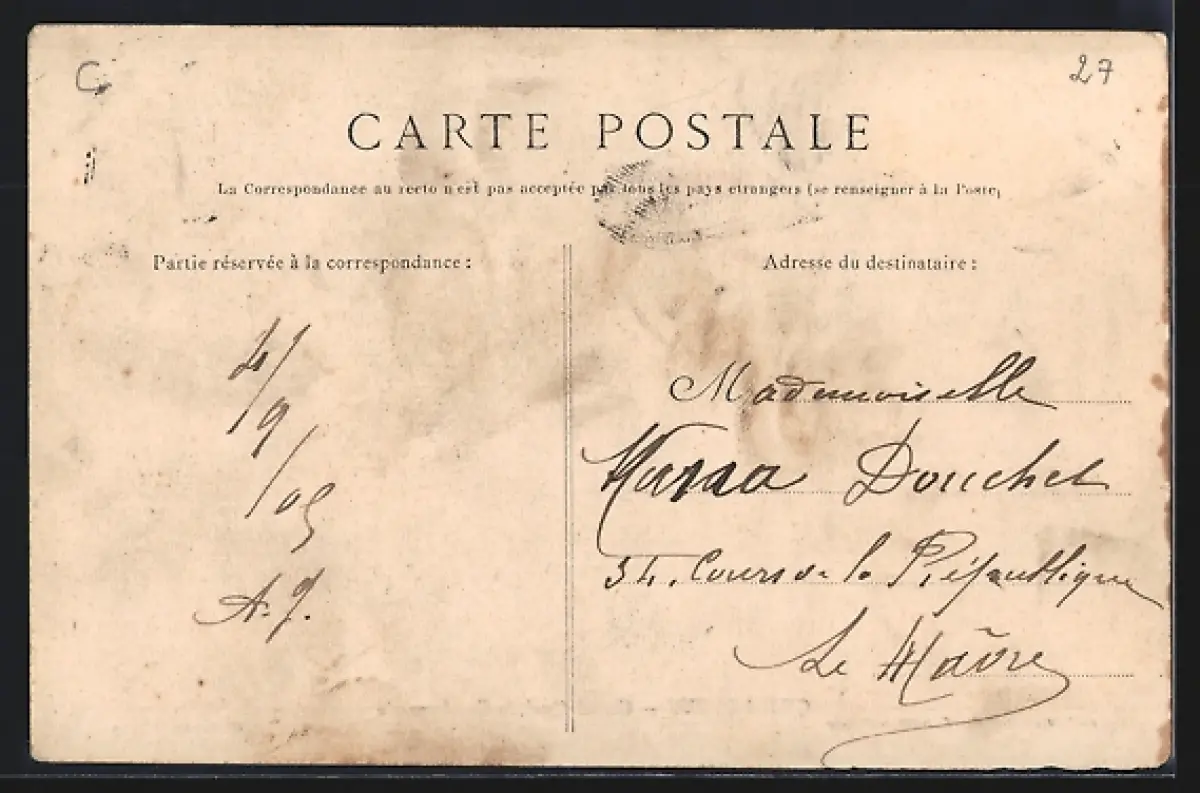 C
27
CARTE POSTALE
La Correspondance au recto n'est pas acceptée par tous les pays étrangers (se renseigner à la Poste)
Partie réservée à la correspondance :
4/9/05
A. J.
Adresse du destinataire :
Mademoiselle
Douchet
54. Cours de la République
Le Hâvre